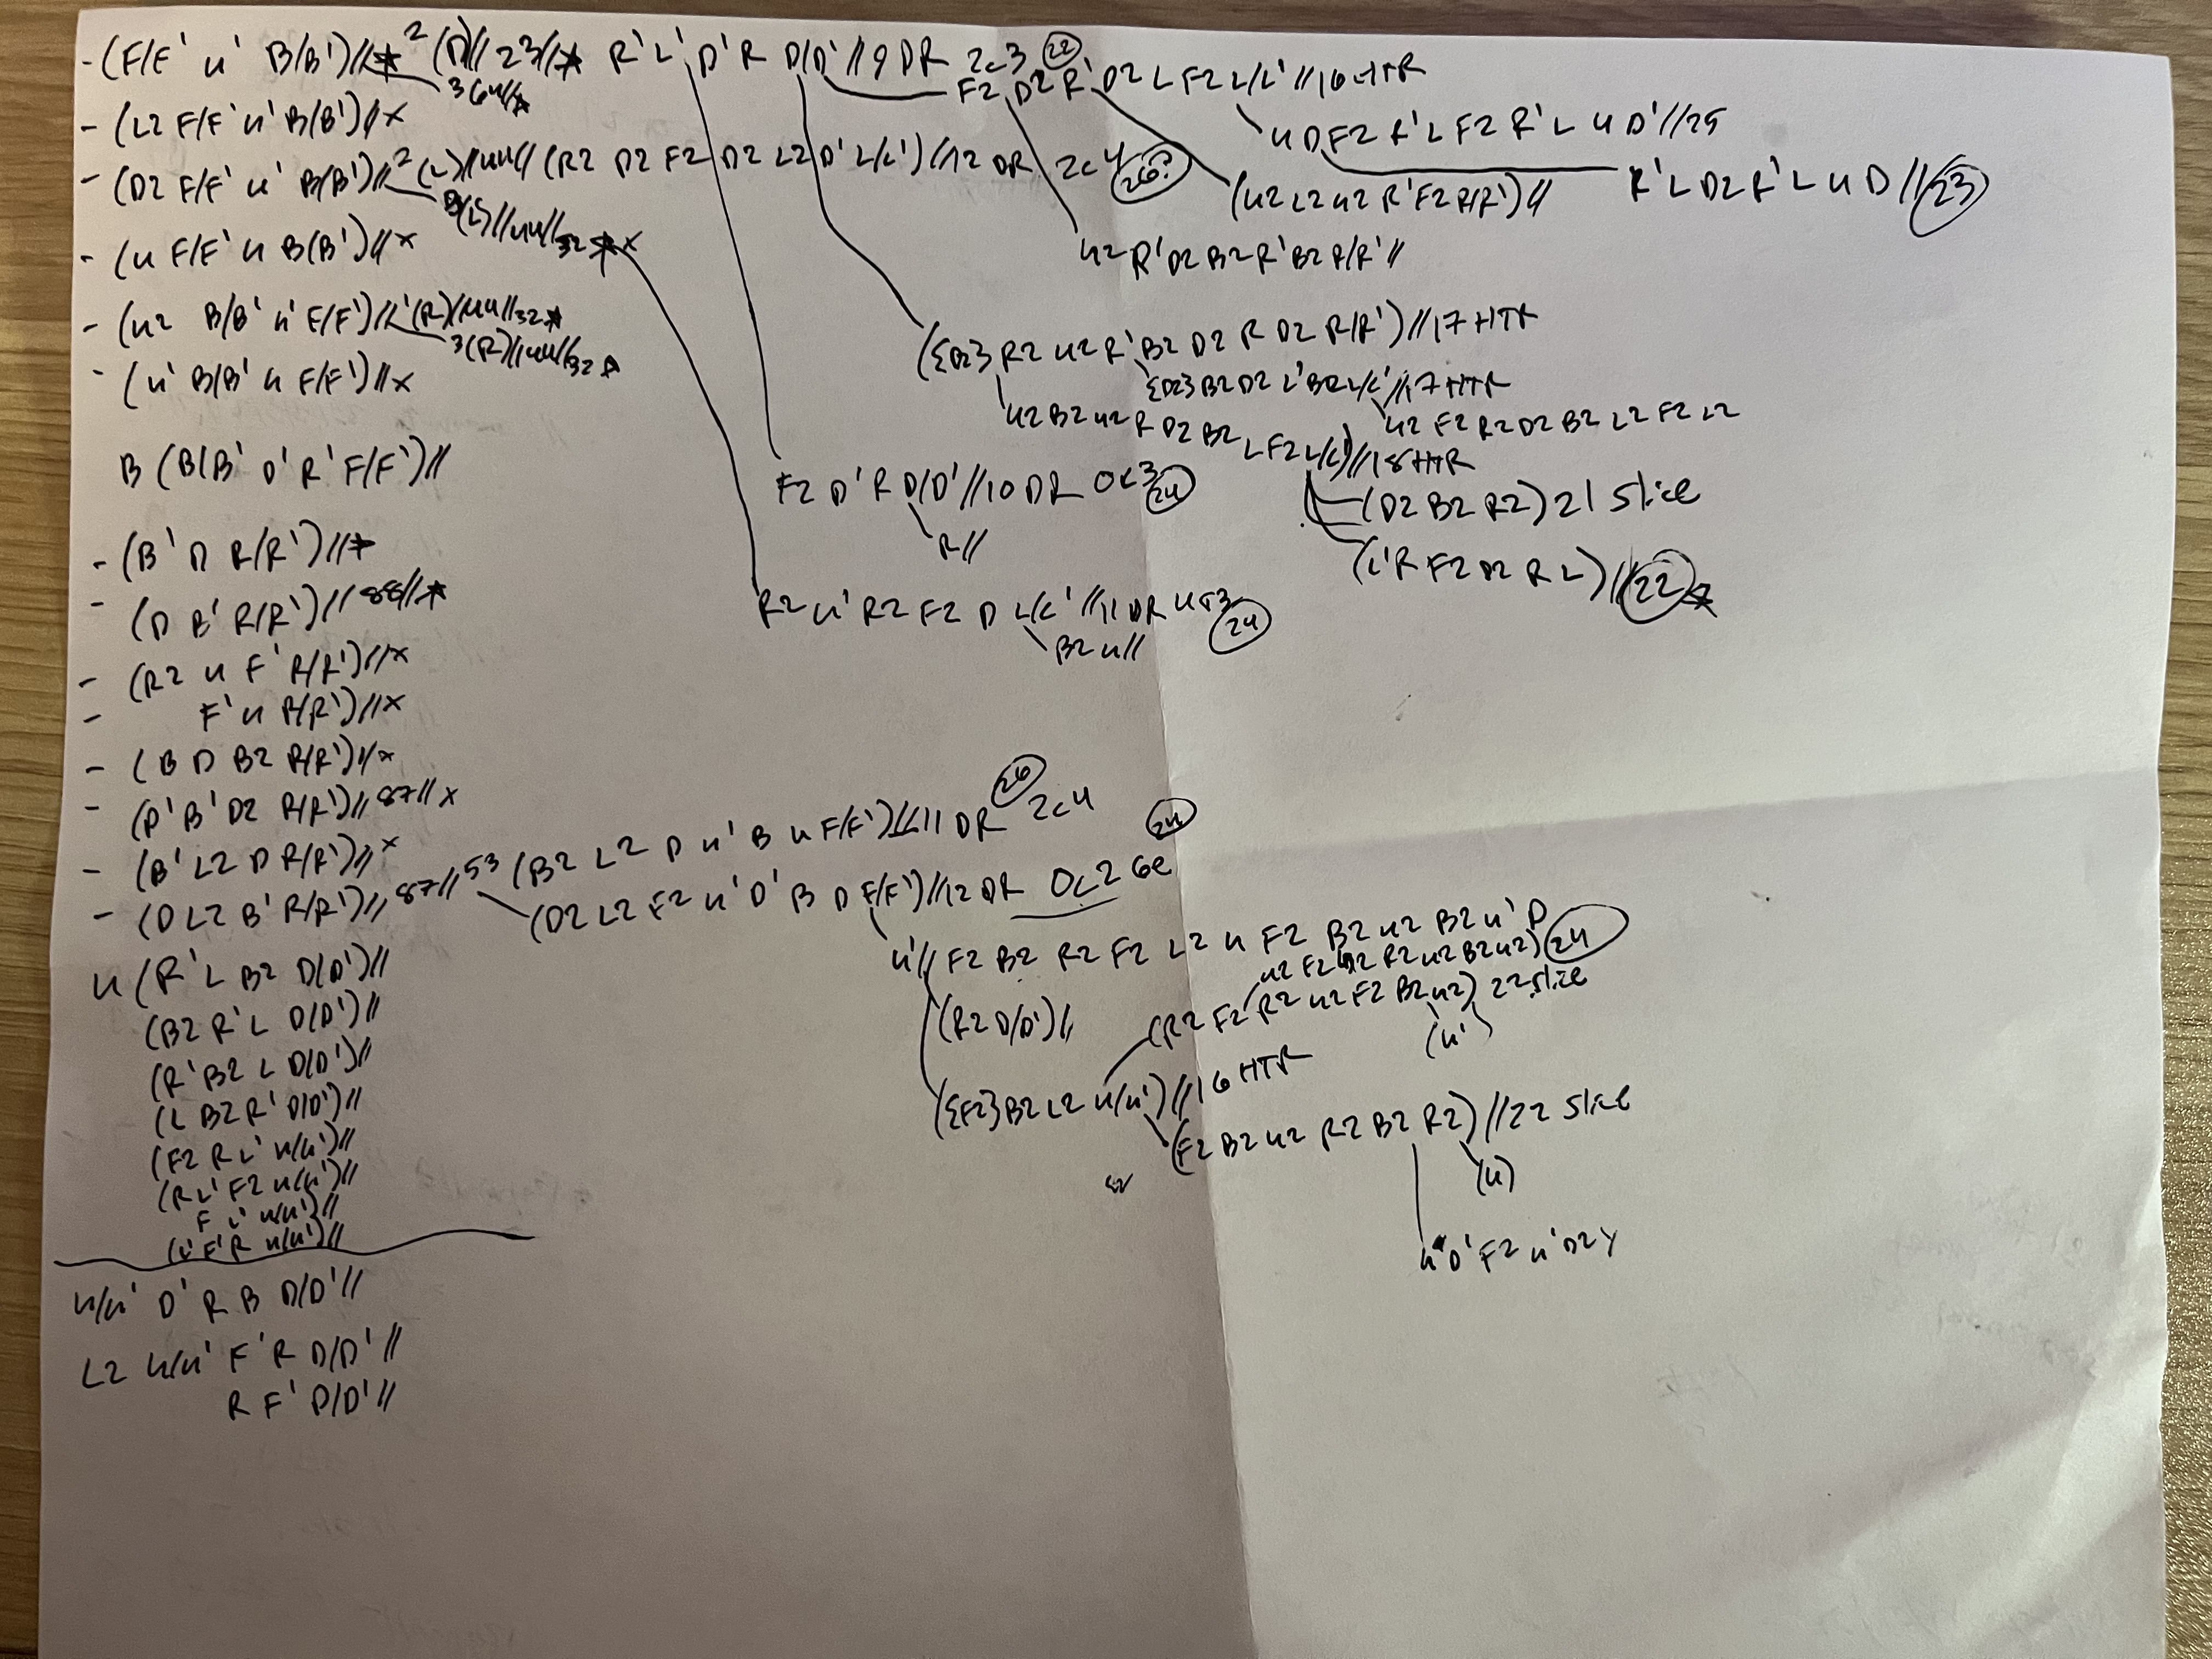 - (F/F' u' B/B')//* ² (D)// 23//* R' L' D' R D/D' // 9 DR 2c3 (22)
³ 64//*
F2 D2 R' D2 L F2 L/L' // 16 HTR
- (L2 F/F' u' B/B')// x
u D F2 R' L F2 R' L u D' // 25
- (D2 F/F' u' B/B')// ² (L)// 44// (R2 D2 F2 D2 L2 D' L/L')// 12 DR 2c4 (26?)
(L)// 44// 32 * x
(u2 L2 u2 R' F2 R/R')//
R' L D2 R' L u D // (23)
- (u F/F' u B/B')// x
u2 R' D2 B2 R' B2 R/R' //
- (u2 B/B' u' F/F')// ¹(R)// 44// 32 *
³(R)// 44// 32 *
({D2} R2 u2 R' B2 D2 R D2 R/R')// 17 HTR
- (u' B/B' u F/F')// x
{D2} B2 D2 L' B2 L/L' // 17 HTR
u2 B2 u2 R D2 B2 L F2 L/L')// 18 HTR
u2 F2 R2 D2 B2 L2 F2 L2
B (B/B' D' R' F/F')//
F2 D' R D/D' // 10 DR 0c3 (24)
R //
(D2 B2 R2) 21 slice
(L' R F2 D2 R L)// (22) *
- (B' D R/R')// *
- (D B' R/R')// 88// *
R2 u' R2 F2 D L/L' // 11 DR 4c3 (24)
B2 u //
- (R2 u F' R/R')// x
- F' u R/R')// x
- (B D B2 R/R')// x
- (D' B' D2 R/R')// 87// x
- (B' L2 D R/R')// x
- (D L2 B' R/R')// 87// 53 (B2 L2 D u' B u F/F')// 11 DR (26) 2c4
(D2 L2 F2 u' D' B D F/F')// 12 DR 0c2 6e (24)
u' // F2 B2 R2 F2 L2 u F2 B2 u2 B2 u' D
u (R' L B2 D/D')//
(B2 R' L D/D')//
(R' B2 L D/D')//
(L B2 R' D/D')//
(F2 R L' u/u')//
(R L' F2 u/u')//
F L' u/u')//
(L' F' R u/u')//
(R2 D/D')//
(R2 F2 R2 u2 F2 B2 u2) 22 slice
(u')
({F2} B2 L2 u/u')// 16 HTR
(F2 B2 u2 R2 B2 R2)// 22 slice
(u)
u/u' D' R B D/D' //
L2 u/u' F' R D/D' //
R F' D/D' //